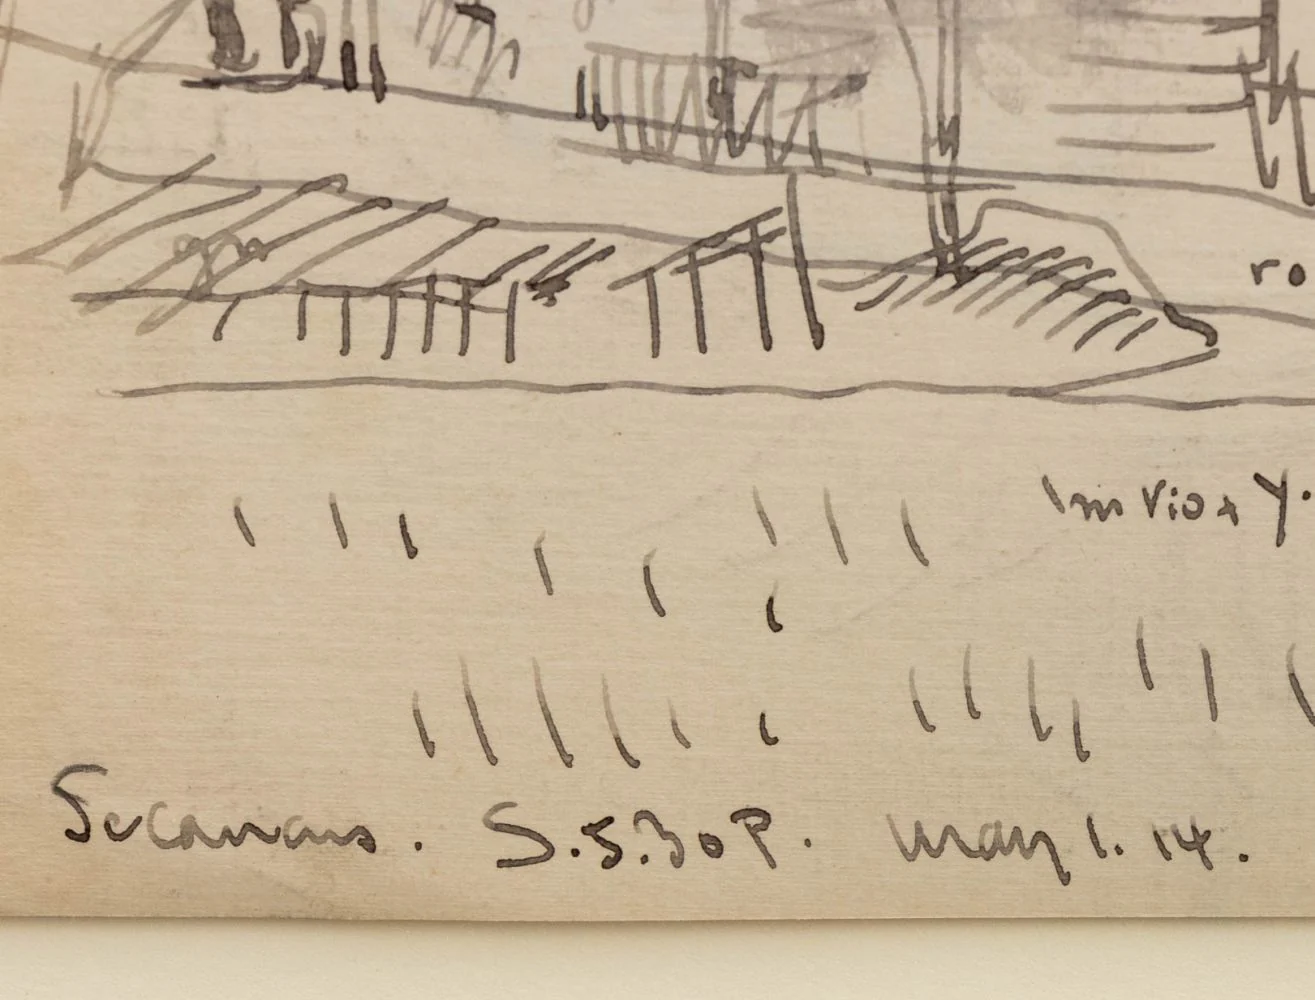 grn
ro
lm Vio + Y.
Secaucus. S.5.30 P. May 1. 14.